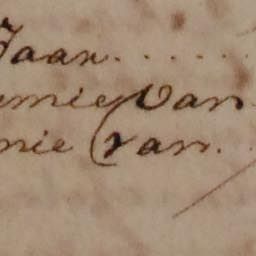 Jaar. . . . . .
emie Van
nie van.